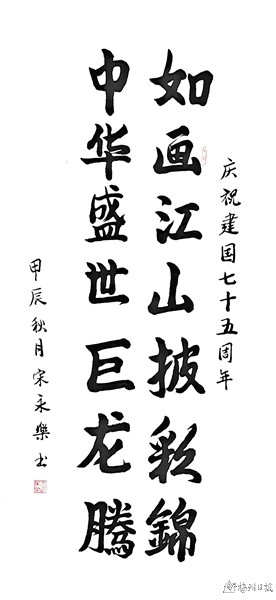 庆祝建国七十五周年
如画江山披彩錦
中华盛世巨龙騰
甲辰秋月宋永樂书
梅州日报